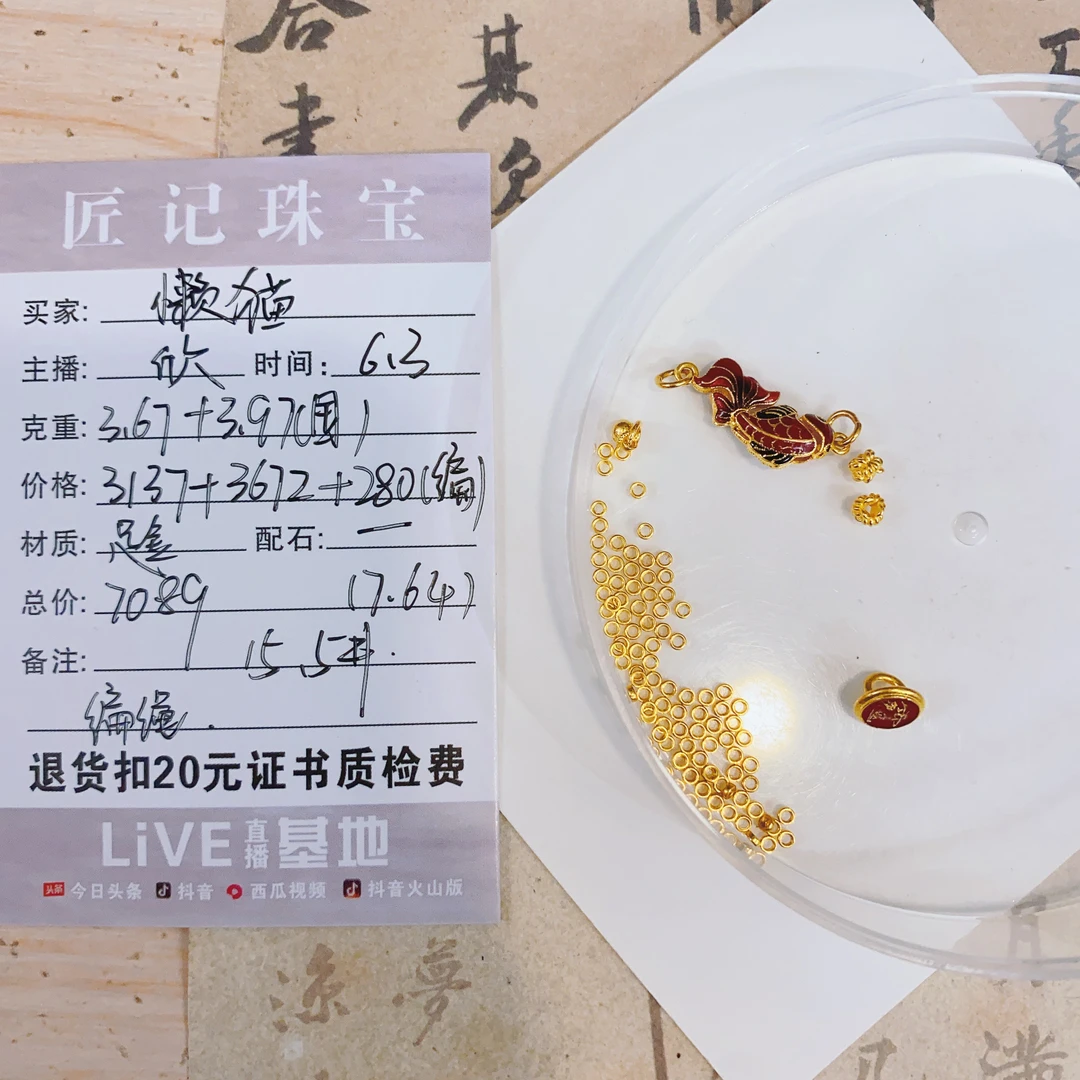 合
其
书
欠
匠记珠宝
买家: 懒猫
主播: 欣 时间: 6.3
克重: 3.67+3.97(国)
价格: 3137+3672+280(编)
材质: 足金 配石: 一
总价: 7089 (7.64)
备注: 15.5料.
编绳.
退货扣20元证书质检费
LiVE直播基地
头条 今日头条 抖音 西瓜视频 抖音火山版
凉 夢
月
满